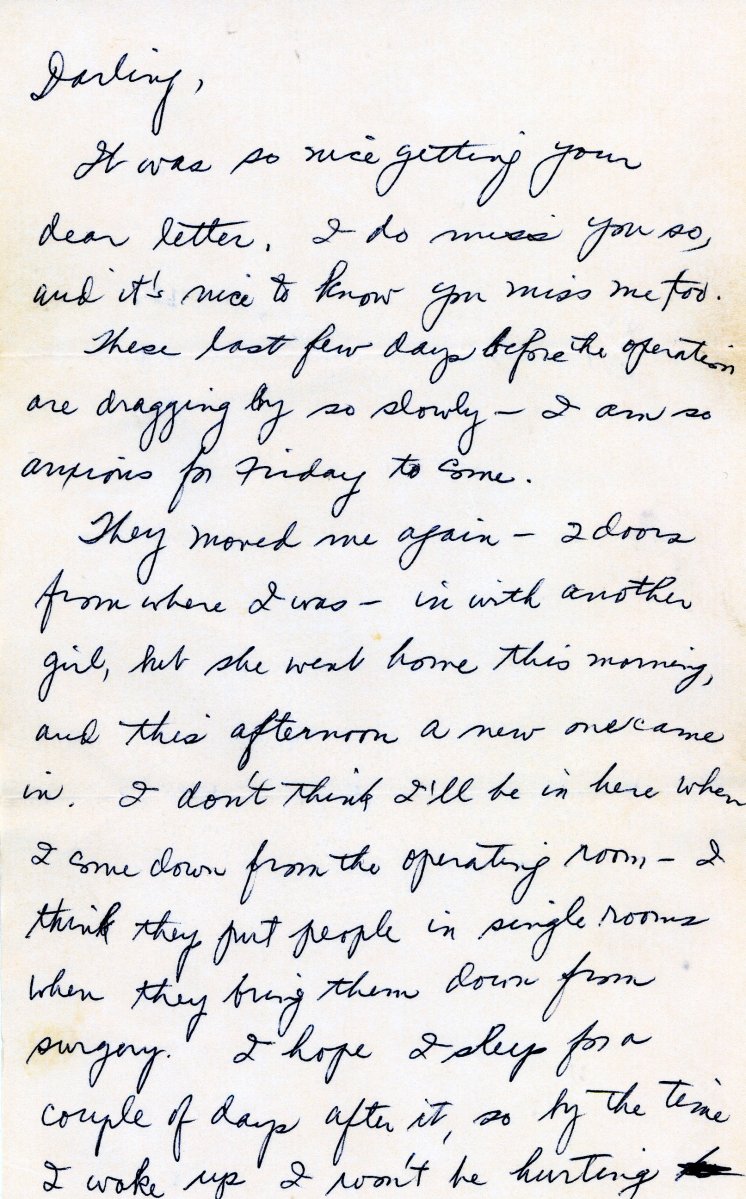 Darling,
It was so nice getting your
dear letter. I do miss you so,
and it's nice to know you miss me too.
These last few days before the operation
are dragging by so slowly – I am so
anxious for Friday to come.
They moved me again – 2 doors
from where I was – in with another
girl, but she went home this morning,
and this afternoon a new one came
in. I don't think I'll be in here when
I come down from the operating room – I
think they put people in single rooms
when they bring them down from
surgery. I hope I sleep for a
couple of days after it, so by the time
I wake up I won't be hurting